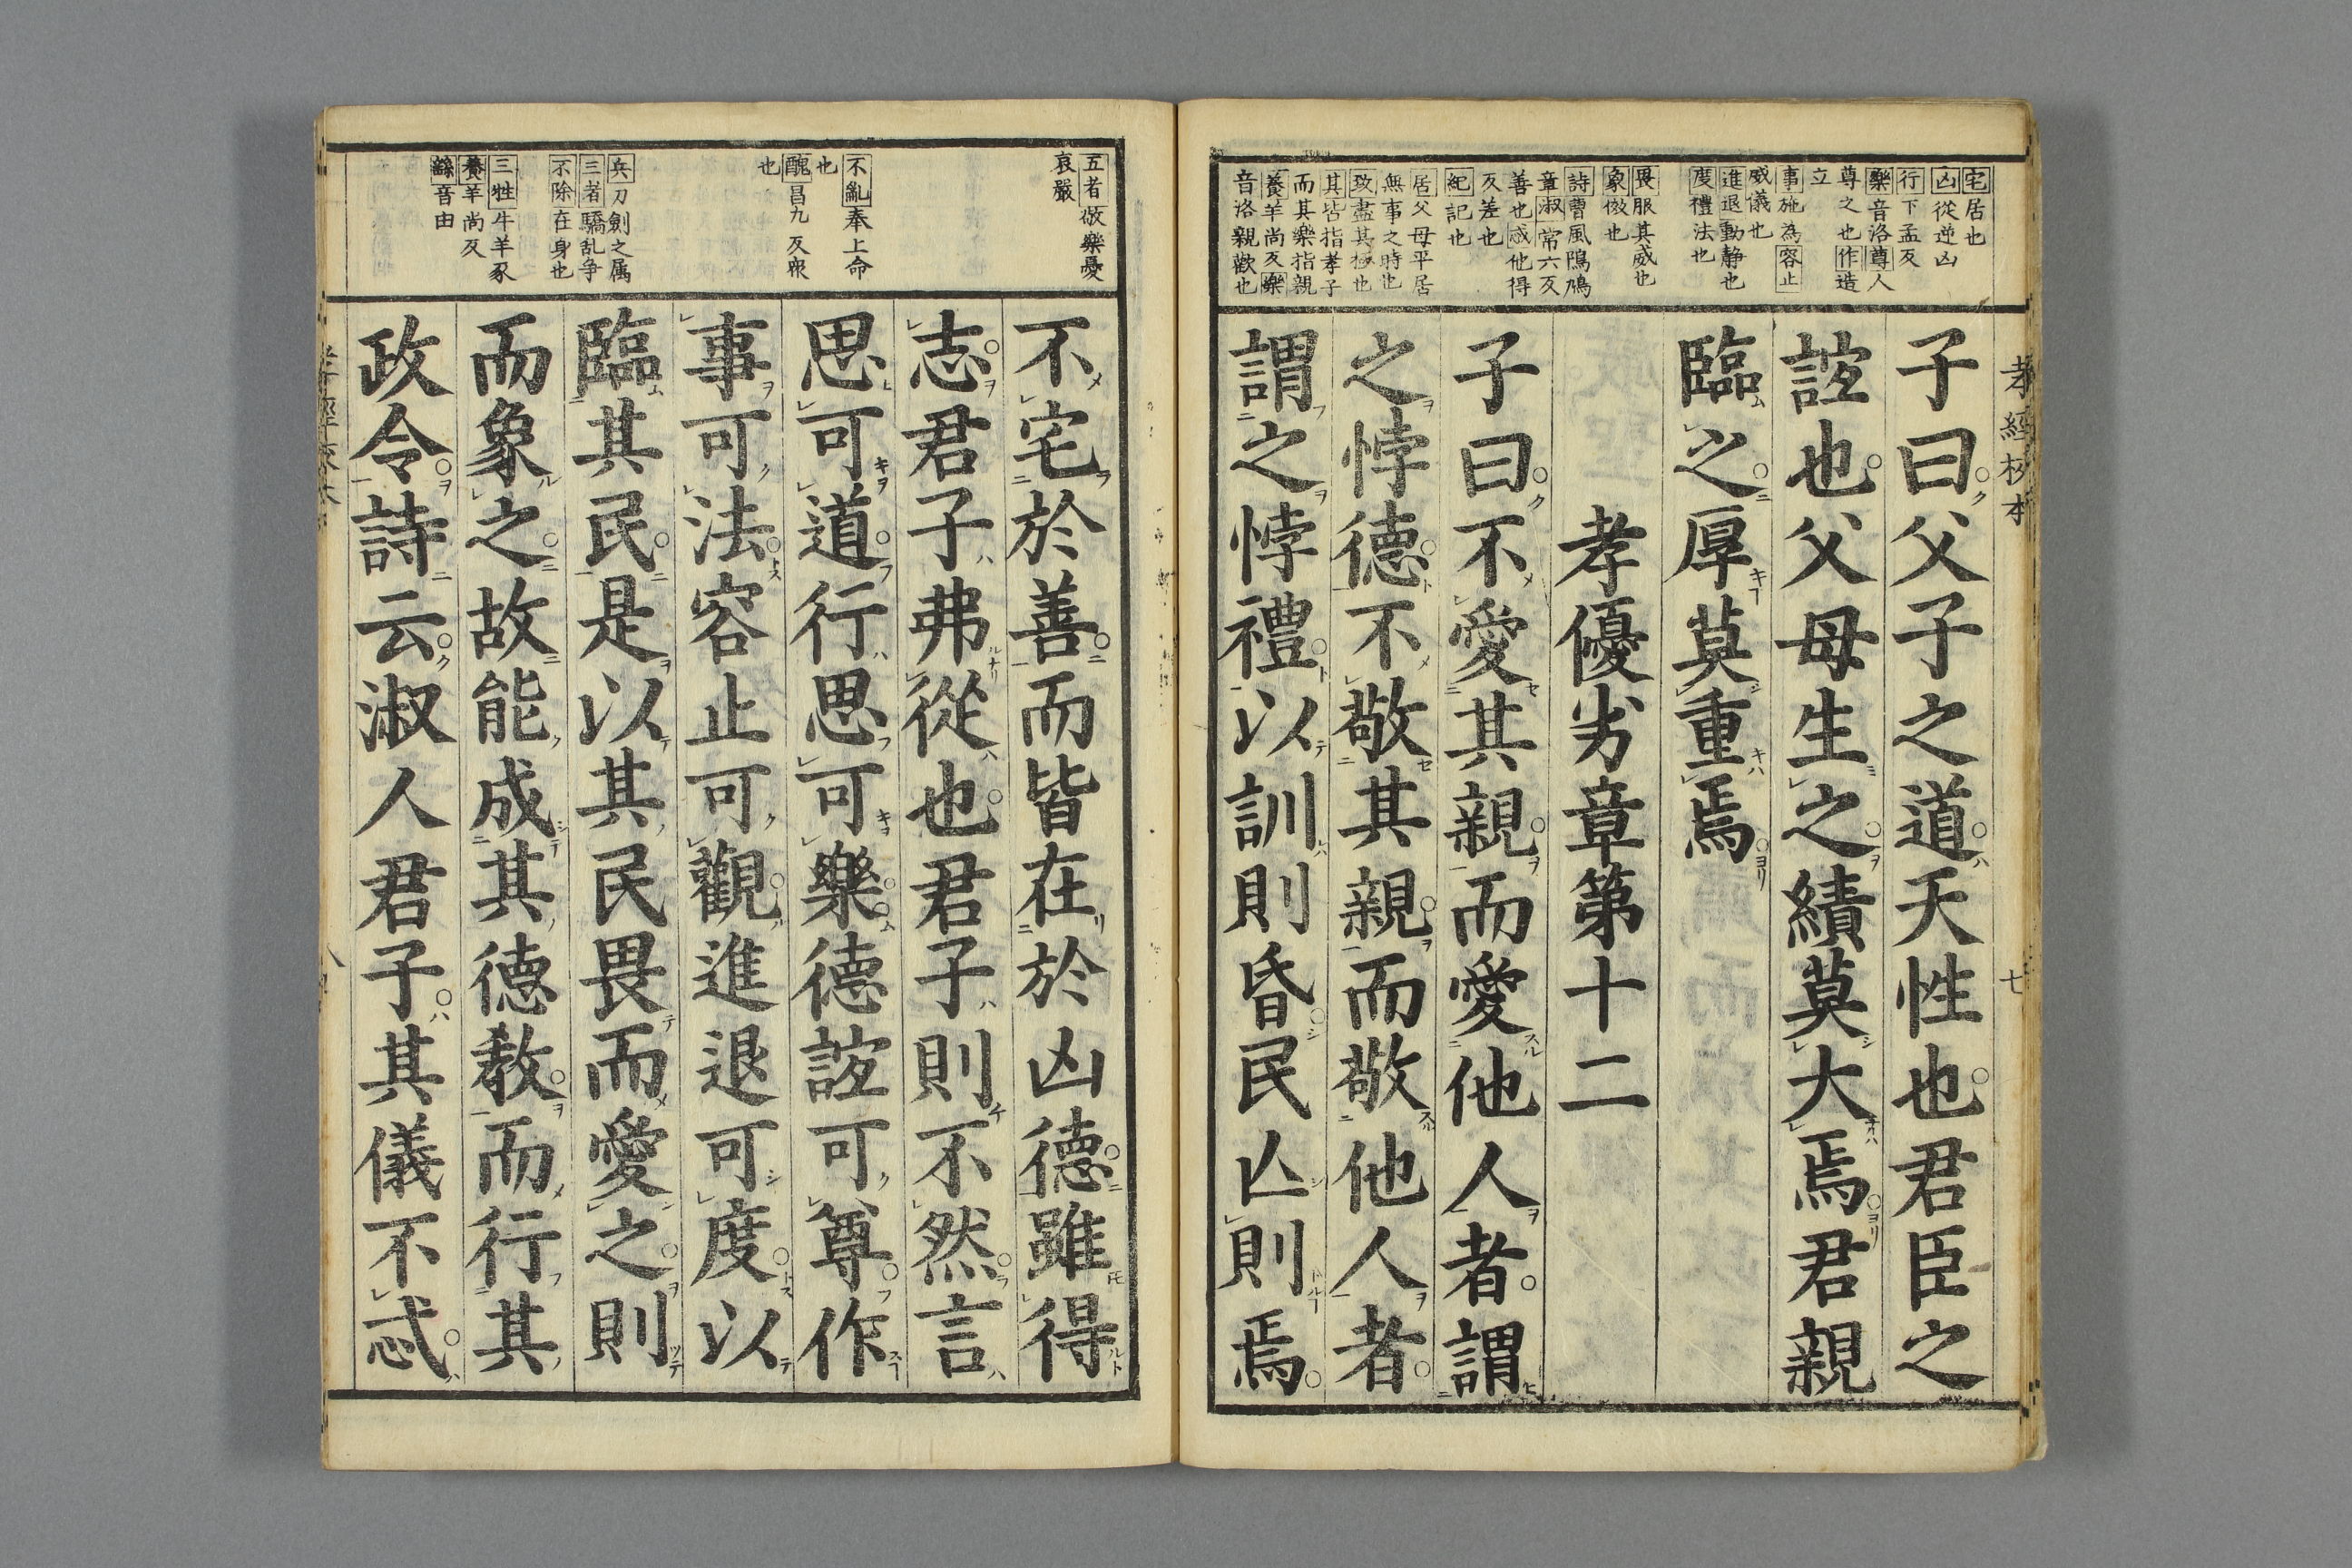 孝經校本
七
宅居也
凶從逆凶
行下孟反
樂音洛尊人
尊之也作造
立
事施為容止
威儀也
進退動静也
度禮法也
畏服其威也
象倣也
詩曹風鳲鳩
章淑常六反
善也忒他得
反差也
紀記也
居父母平居
無事之時也
致盡其極也
其皆指孝子
而其樂指親
養羊尚反樂
音洛親歡也
子曰父子之道天性也君臣之
誼也父母生之績莫大焉君親
臨之厚莫重焉
孝優劣章第十二
子曰不愛其親而愛他人者謂
之悖德不敬其親而敬他人者
謂之悖禮以訓則昏民亾則焉
五者敬樂憂
哀嚴
不亂奉上命
也
醜昌九反衆
也
兵刀劍之属
三者驕乱争
不除在身也
三牲牛羊豕
養羊尚反
繇音由
不宅於善而皆在於凶德雖得
志君子弗從也君子則不然言
思可道行思可樂德誼可尊作
事可法容止可觀進退可度以
臨其民是以其民畏而愛之則
而象之故能成其德教而行其
政令詩云淑人君子其儀不忒